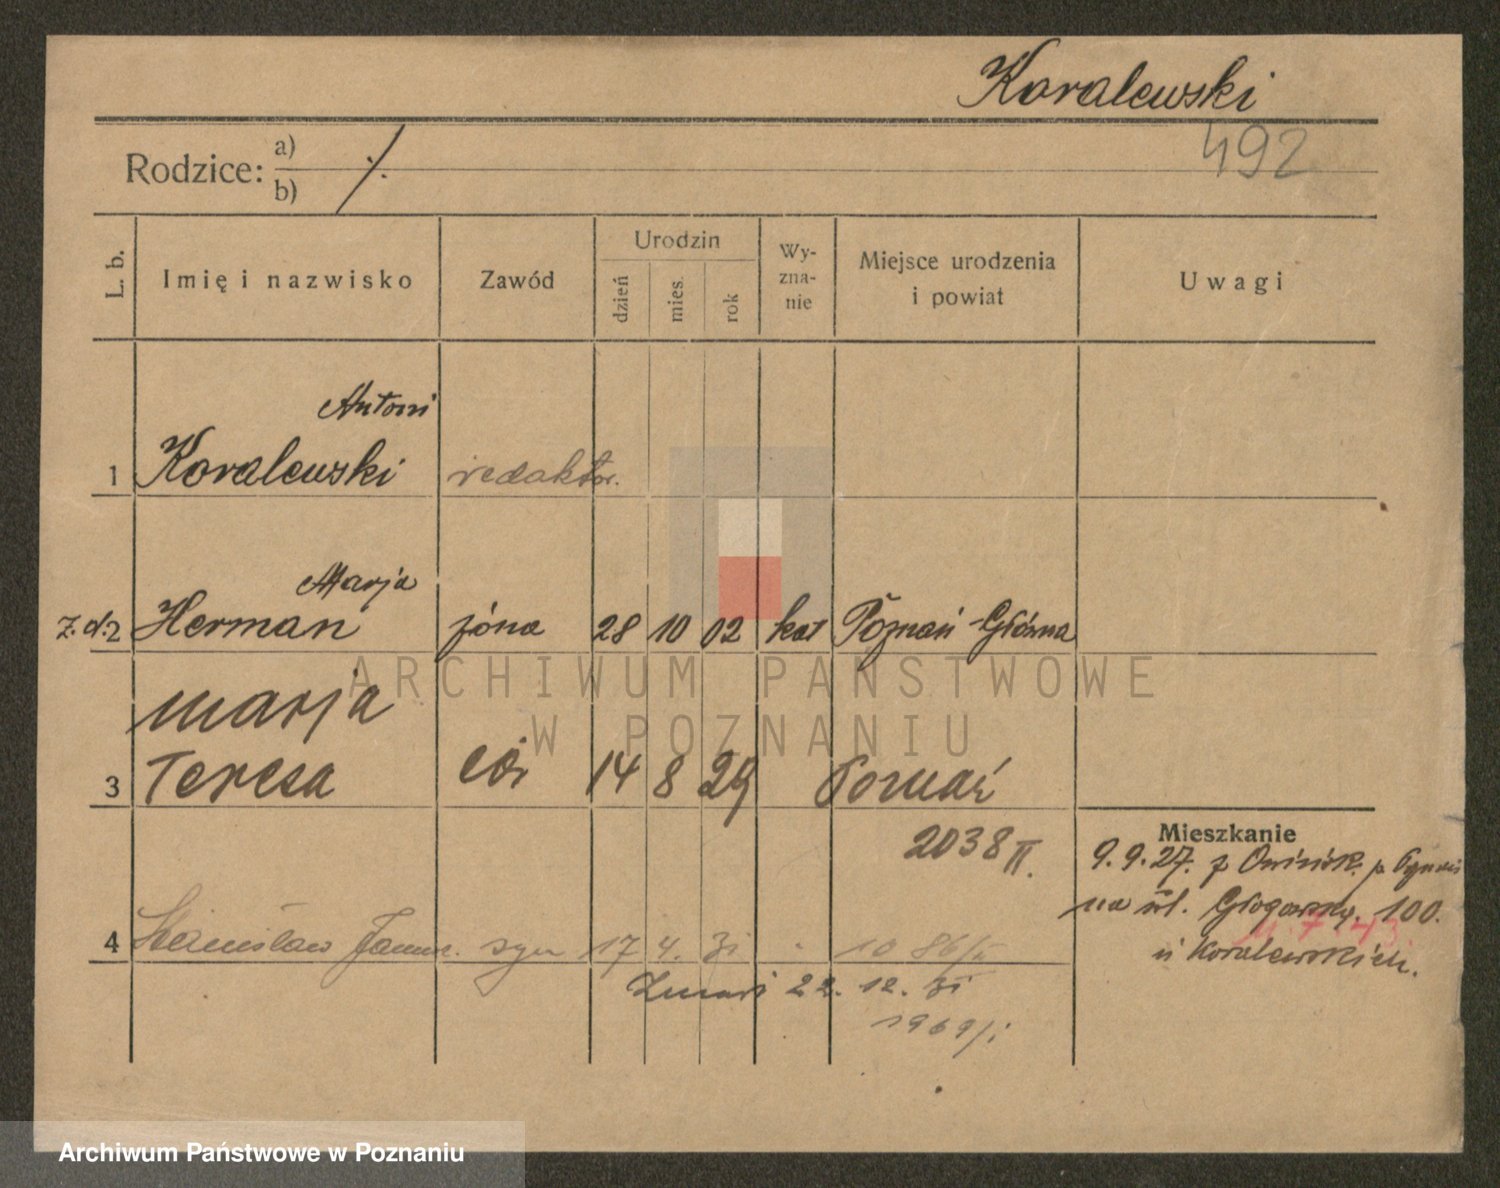 Koralewski
492
Rodzice: a) ·/.
b)
L. b. Imię i nazwisko Zawód Urodzin dzień mies. rok Wy-zna-nie Miejsce urodzenia i powiat Uwagi
Antoni
1 Koralewski redaktor.
Marja
z. d. 2 Herman żóna 28 10 02 kat Poznań-Główna
ARCHIWUM PAŃSTWOWE
W POZNANIU
Marja
3 Teresa 14 8 29 Poznań
2038 II.
Mieszkanie
9.9.27. z
na ul. Głogowską. 100.
u Koralewskich.
4 Stanisław syn 17 4. 31 1086/
Zmarł 22. 12. 31
1969/i
Archiwum Państwowe w Poznaniu